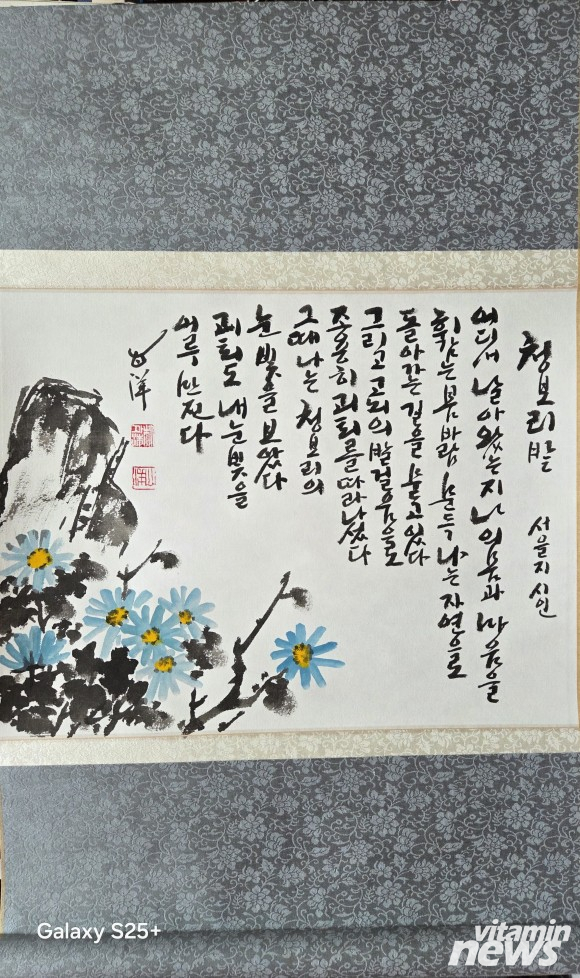 청보리밭
서을지 시인
어디서 날아왔는지 나의 몸과 마음을
휘감는 봄바람 문득 나는 자연으로
돌아가는 길을 묻고 있다
그리고 고뇌의 발걸음으로
종용히 괴퇴를 따라나섰다
그때 나는 청보리의
눈빛을 보았다
괴퇴도 내 눈빛을
어루만진다
Galaxy S25+
vitamin
news